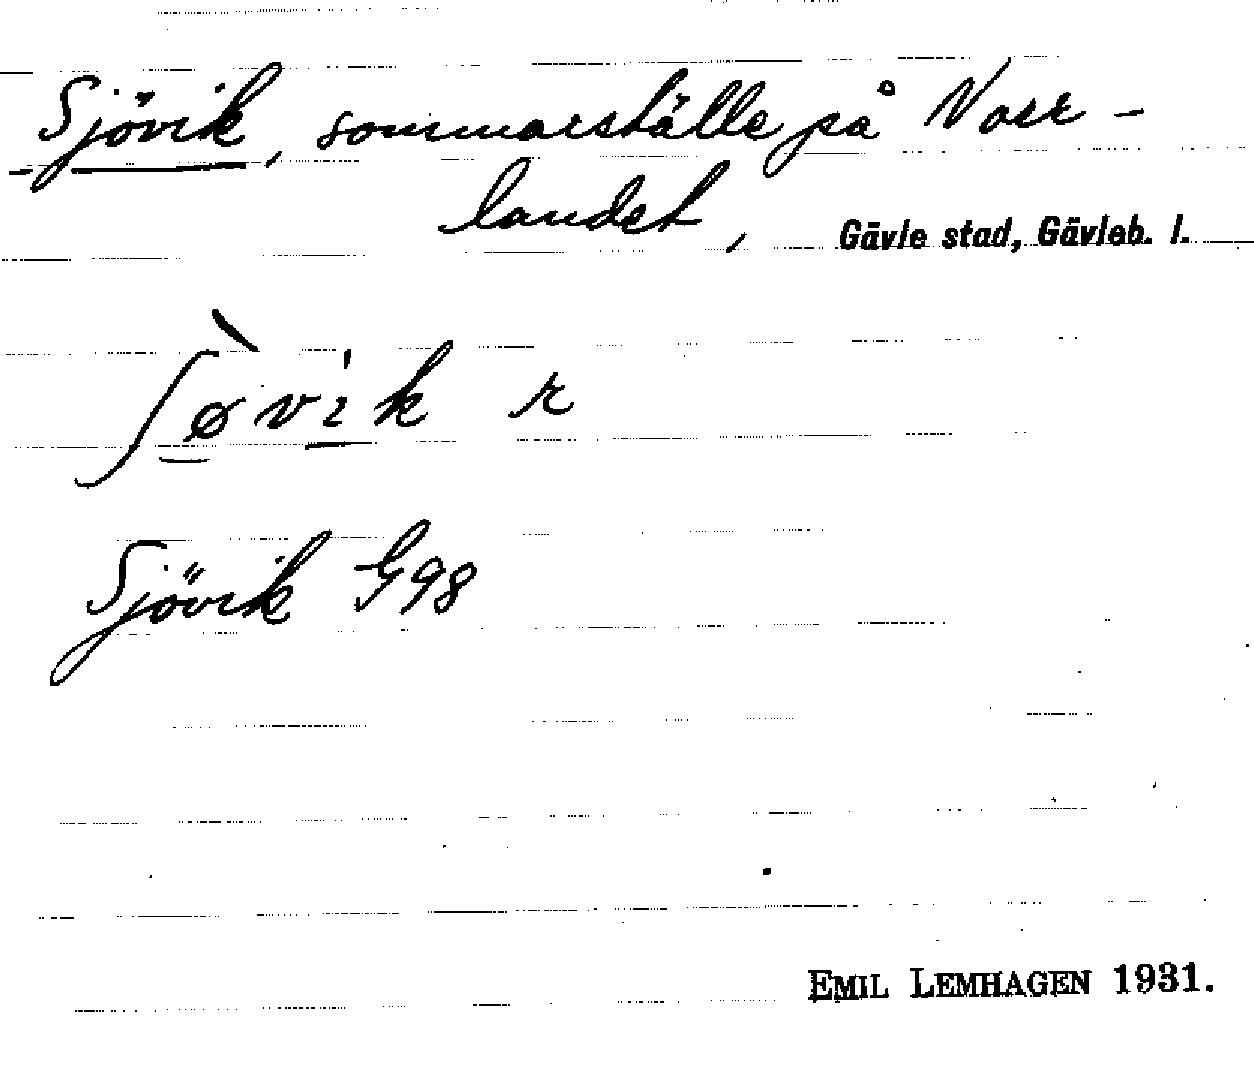 Sjövik, sommarställe på Norr-
landet, Gävle stad, Gävleb. l.
ʃø̠̀vı̠̍k r
Sjövik G98
EMIL LEMHAGEN 1931.